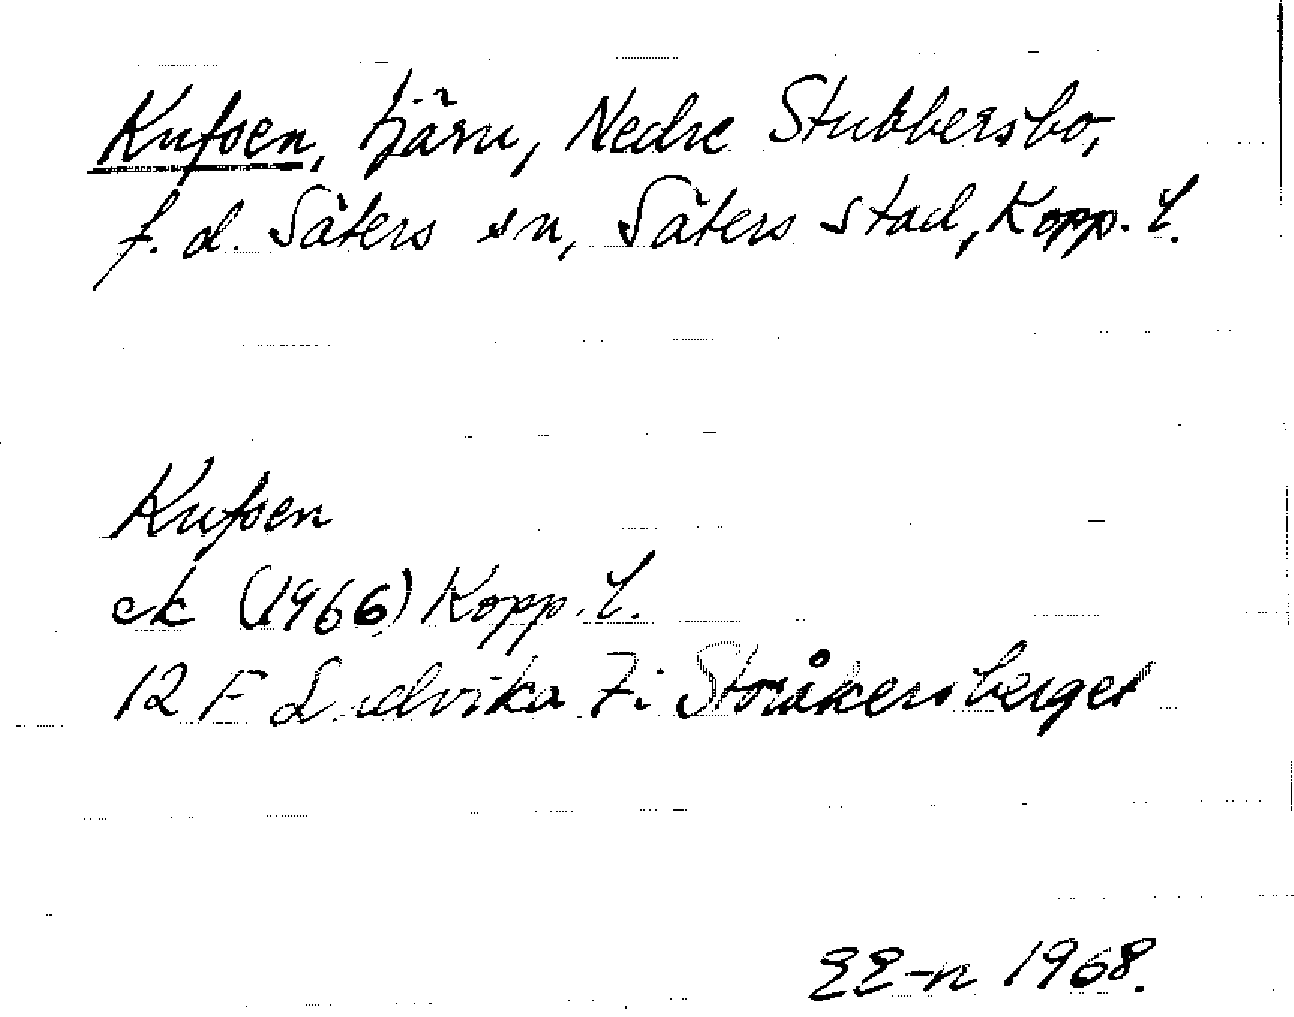 Kufsen, tjärn, Nedre Stubbersbo,
f. d. Säters sn, Säters stad, Kopp. l.
Kufsen
ek (1966) Kopp. l.
12 F Ludvika 7i Storåkersberget
EE-n 1968.